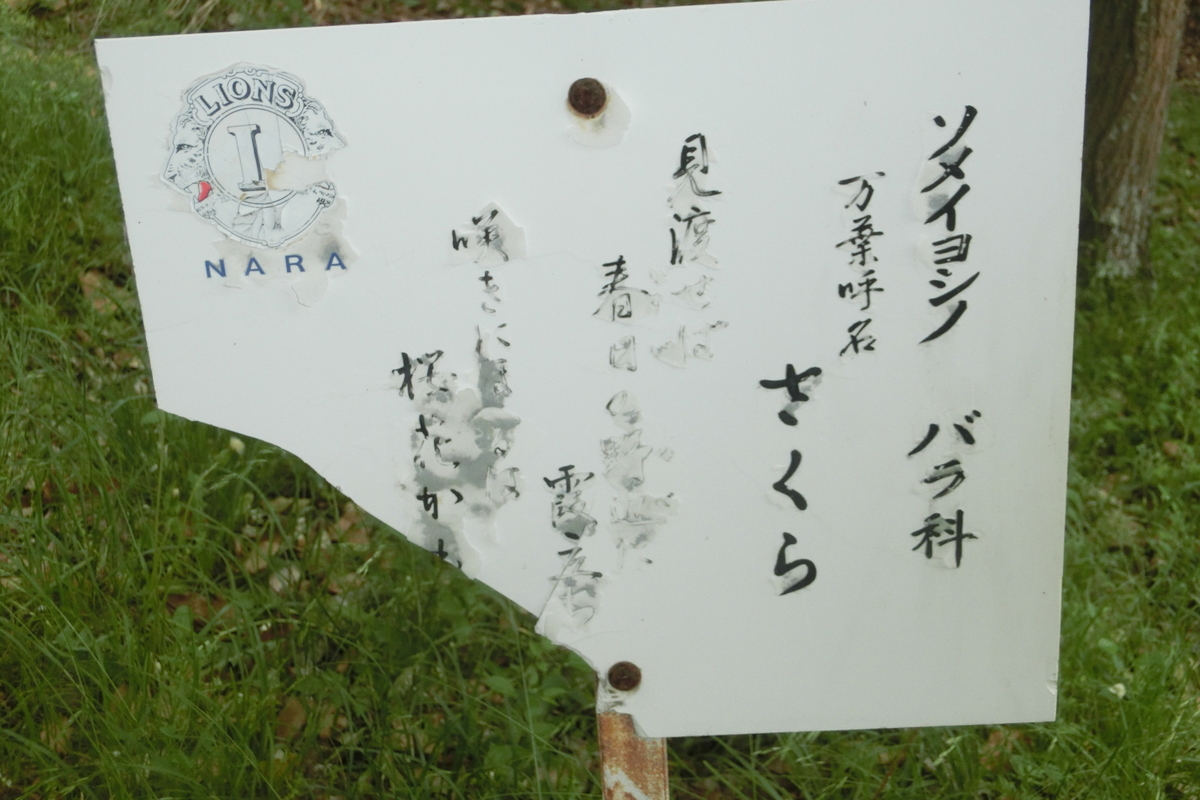 ソメイヨシノ バラ科
万葉呼名
さくら
見渡せば
春日の野辺に
霞立
咲きにほへるは
桜花かも
LIONS
L
NARA